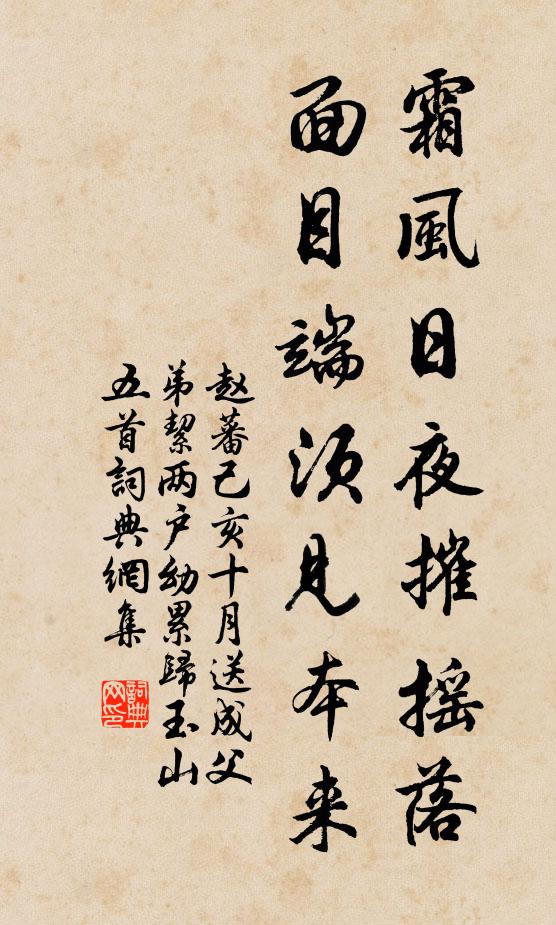 霜風日夜摧搖落
面目端須見本来
赵蕃己亥十月送成父
弟絜两户幼累歸玉山
五首詞典網集
詞典网印